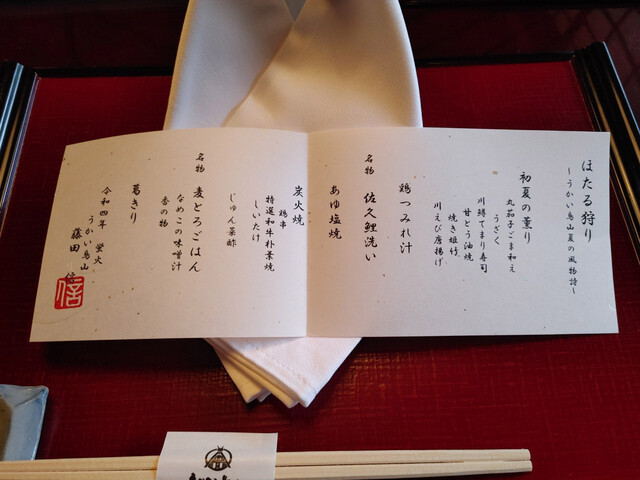 ほたる狩り
～うかい鳥山夏の風物詩～
初夏の薫り
丸茄子ごま和え
うざく
川鱒てまり寿司
甘とう油焼
焼き姫竹
川えび唐揚げ
鶏つみれ汁
名物 佐久鯉洗い
あゆ塩焼
炭火焼
鶏串
特選和牛朴葉焼
しいたけ
じゅん菜酢
名物 麦とろごはん
なめこの味噌汁
香の物
葛きり
令和四年 蛍火
うかい鳥山
藤田
信